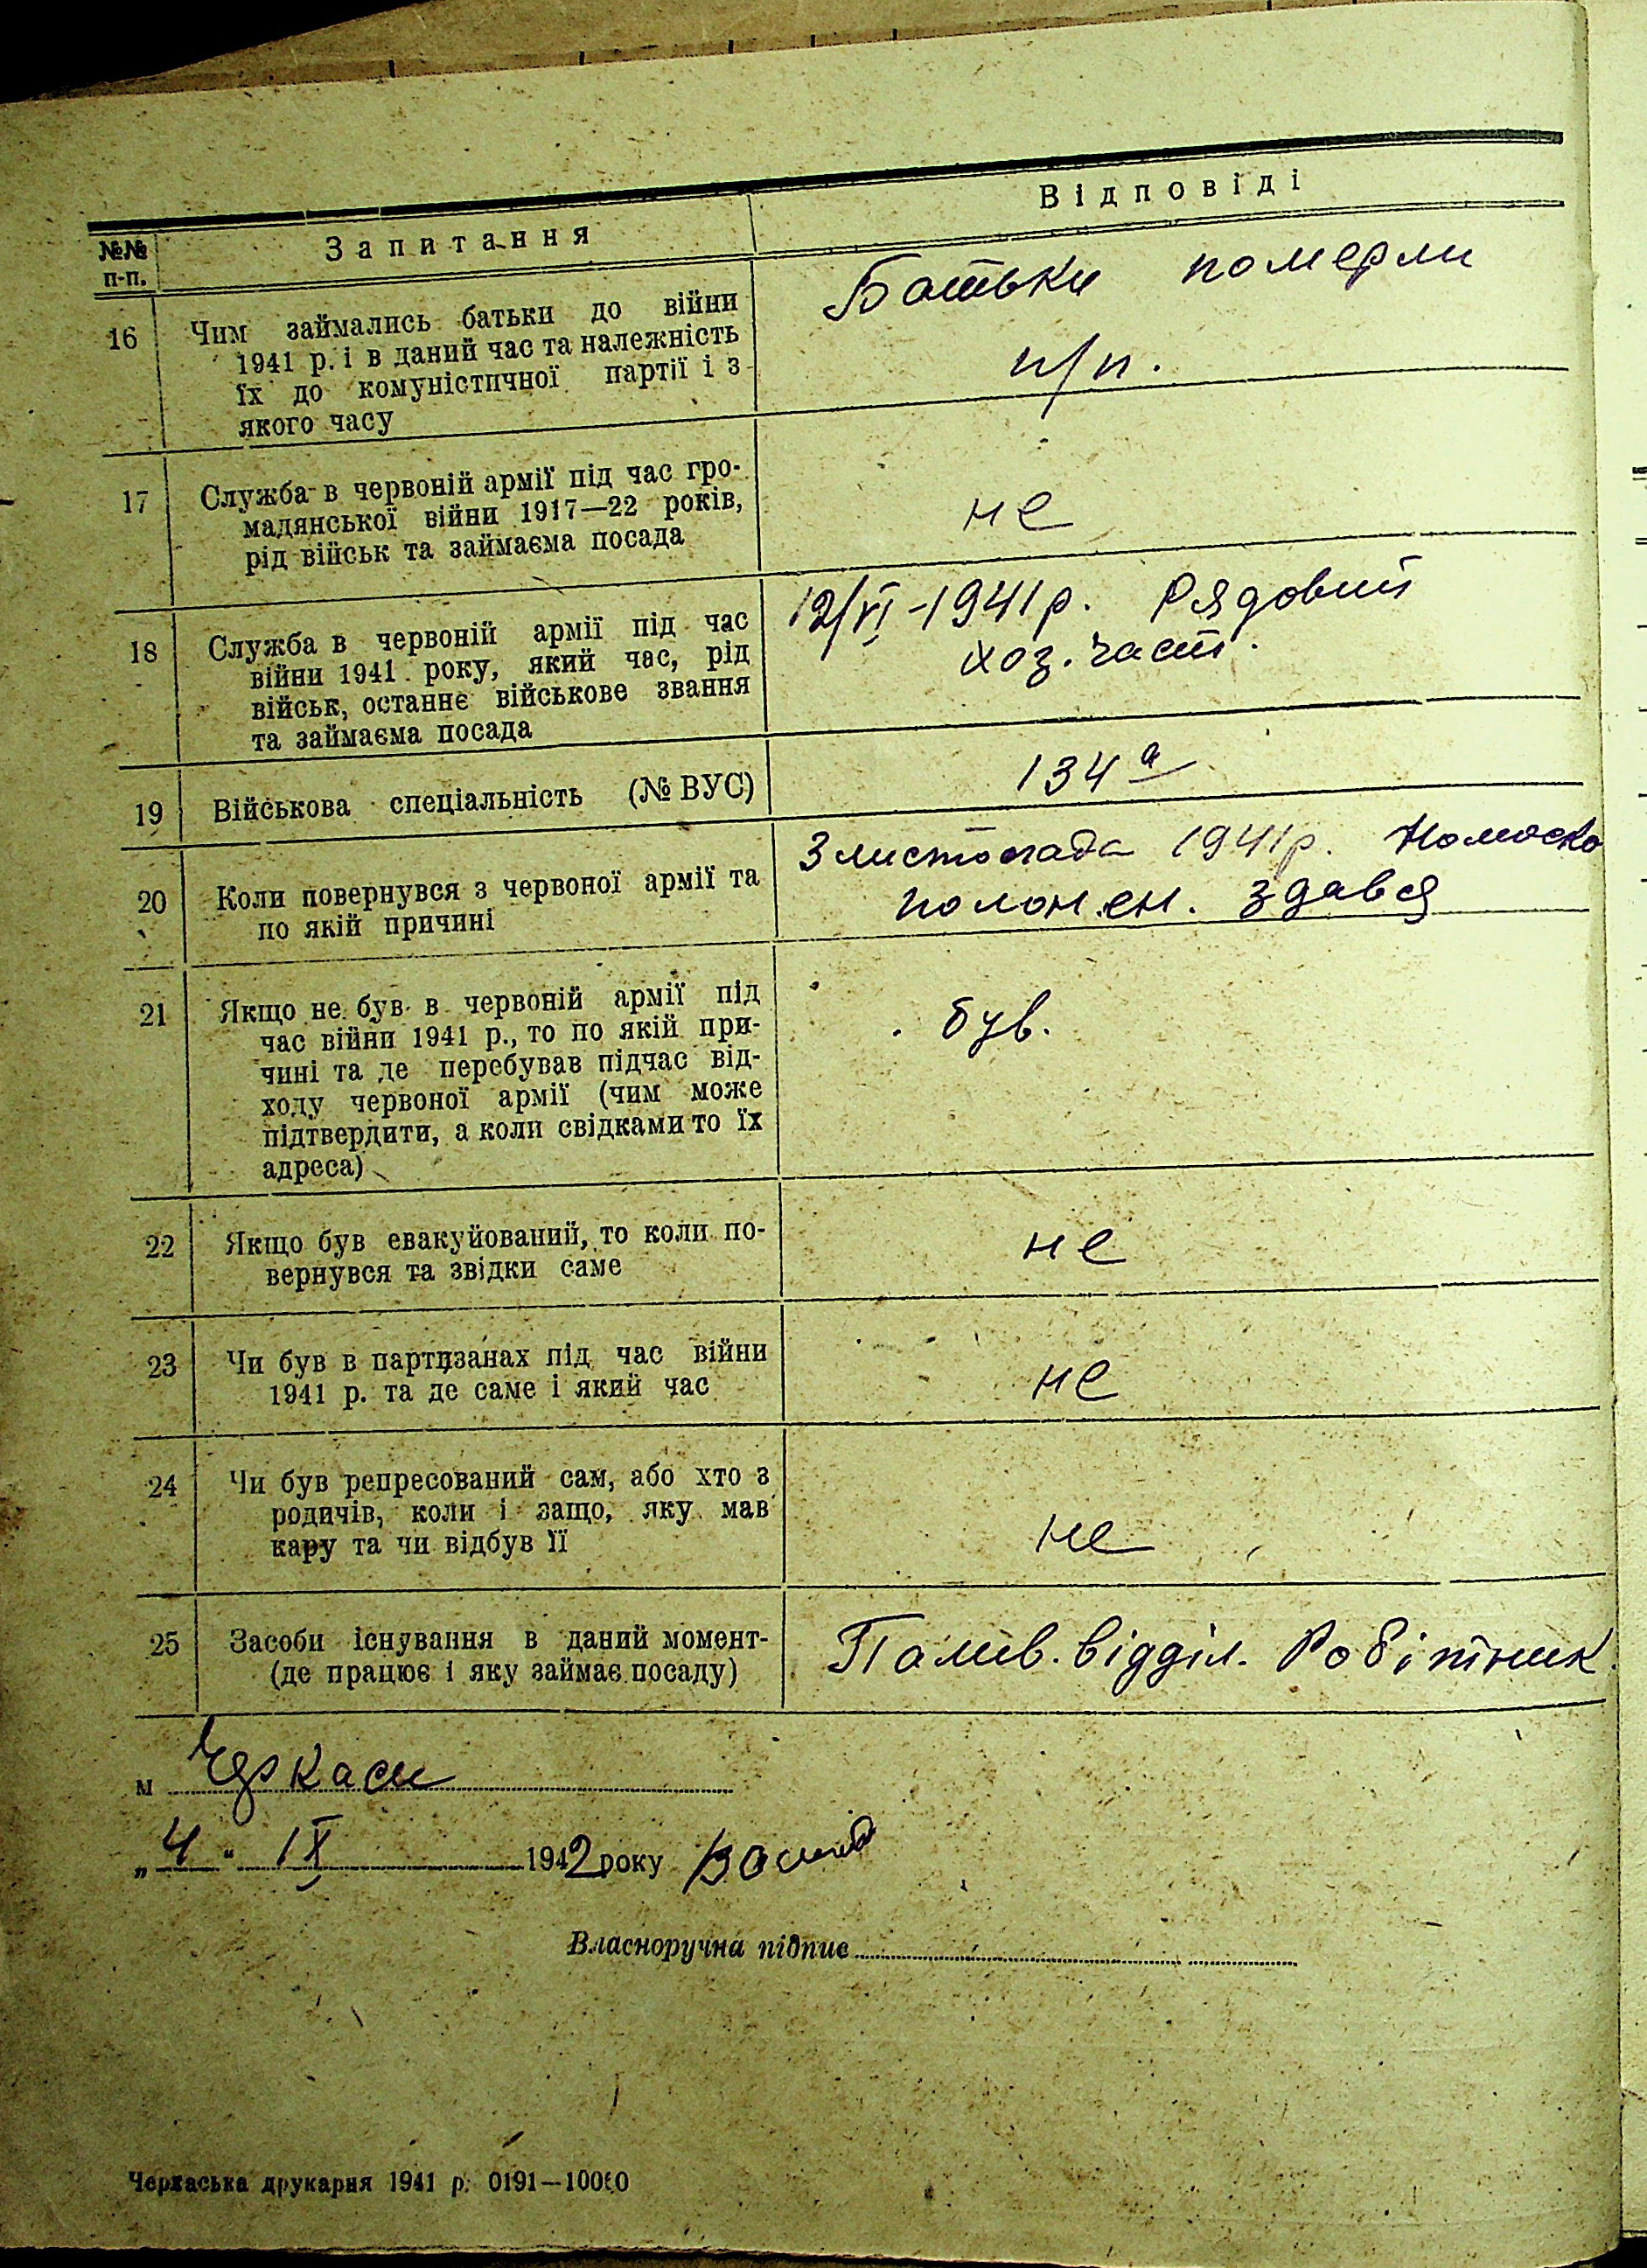 №№ п-п.
Запитання
Відповіді
16
Чим займались батьки до війни
1941 р. і в даний час та належність
їх до комуністичної партії і з
якого часу
Батьки померли
п/п.
17
Служба в червоній армії під час гро-
мадянської війни 1917—22 років,
рід військ та займаєма посада
не
18
Служба в червоній армії під час
війни 1941 року, який час, рід
військ, останнє військове звання
та займаєма посада
12/VI-1941 р. Рядовий
хоз. част.
19
Військова спеціальність (№ ВУС)
134 а
20
Коли повернувся з червоної армії та
по якій причині
3 листопада 1941 р.
полонен. здався
21
Якщо не був в червоній армії під
час війни 1941 р., то по якій при-
чині та де перебував підчас від-
ходу червоної армії (чим може
підтвердити, а коли свідками то їх
адреса)
був.
22
Якщо був евакуйований, то коли по-
вернувся та звідки саме
не
23
Чи був в партизанах під час війни
1941 р. та де саме і який час
не
24
Чи був репресований сам, або хто з
родичів, коли і защо, яку мав
кару та чи відбув її
не
25
Засоби існування в даний момент-
(де працює і яку займає посаду)
Палив. відділ. Робітник.
м Черкаси
„4" IX 1942 року
Власноручна підпис
Черкаська друкарня 1941 р. 0191—10000